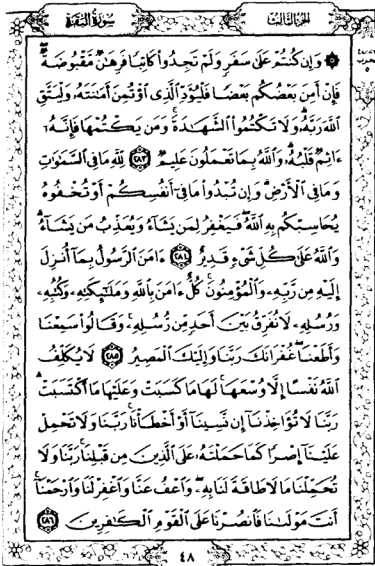 الجزء الثالث
سورة البقرة
۞ وَإِن كُنتُمْ عَلَىٰ سَفَرٍ وَلَمْ تَجِدُوا۟ كَاتِبًا فَرِهَٰنٌ مَّقْبُوضَةٌ
فَإِنْ أَمِنَ بَعْضُكُم بَعْضًا فَلْيُؤَدِّ ٱلَّذِى ٱؤْتُمِنَ أَمَٰنَتَهُۥ وَلْيَتَّقِ
ٱللَّهَ رَبَّهُۥ وَلَا تَكْتُمُوا۟ ٱلشَّهَٰدَةَ وَمَن يَكْتُمْهَا فَإِنَّهُۥٓ
ءَاثِمٌ قَلْبُهُۥ وَٱللَّهُ بِمَا تَعْمَلُونَ عَلِيمٌ ٢٨٣ لِّلَّهِ مَا فِى ٱلسَّمَٰوَٰتِ
وَمَا فِى ٱلْأَرْضِ وَإِن تُبْدُوا۟ مَا فِىٓ أَنفُسِكُمْ أَوْ تُخْفُوهُ
يُحَاسِبْكُم بِهِ ٱللَّهُ فَيَغْفِرُ لِمَن يَشَآءُ وَيُعَذِّبُ مَن يَشَآءُ
وَٱللَّهُ عَلَىٰ كُلِّ شَىْءٍ قَدِيرٌ ٢٨٤ ءَامَنَ ٱلرَّسُولُ بِمَآ أُنزِلَ
إِلَيْهِ مِن رَّبِّهِۦ وَٱلْمُؤْمِنُونَ كُلٌّ ءَامَنَ بِٱللَّهِ وَمَلَٰٓئِكَتِهِۦ وَكُتُبِهِۦ
وَرُسُلِهِۦ لَا نُفَرِّقُ بَيْنَ أَحَدٍ مِّن رُّسُلِهِۦ وَقَالُوا۟ سَمِعْنَا
وَأَطَعْنَا غُفْرَانَكَ رَبَّنَا وَإِلَيْكَ ٱلْمَصِيرُ ٢٨٥ لَا يُكَلِّفُ
ٱللَّهُ نَفْسًا إِلَّا وُسْعَهَا لَهَا مَا كَسَبَتْ وَعَلَيْهَا مَا ٱكْتَسَبَتْ
رَبَّنَا لَا تُؤَاخِذْنَآ إِن نَّسِينَآ أَوْ أَخْطَأْنَا رَبَّنَا وَلَا تَحْمِلْ
عَلَيْنَآ إِصْرًا كَمَا حَمَلْتَهُۥ عَلَى ٱلَّذِينَ مِن قَبْلِنَا رَبَّنَا وَلَا
تُحَمِّلْنَا مَا لَا طَاقَةَ لَنَا بِهِۦ وَٱعْفُ عَنَّا وَٱغْفِرْ لَنَا وَٱرْحَمْنَآ
أَنتَ مَوْلَىٰنَا فَٱنصُرْنَا عَلَى ٱلْقَوْمِ ٱلْكَٰفِرِينَ ٢٨٦
٤٨